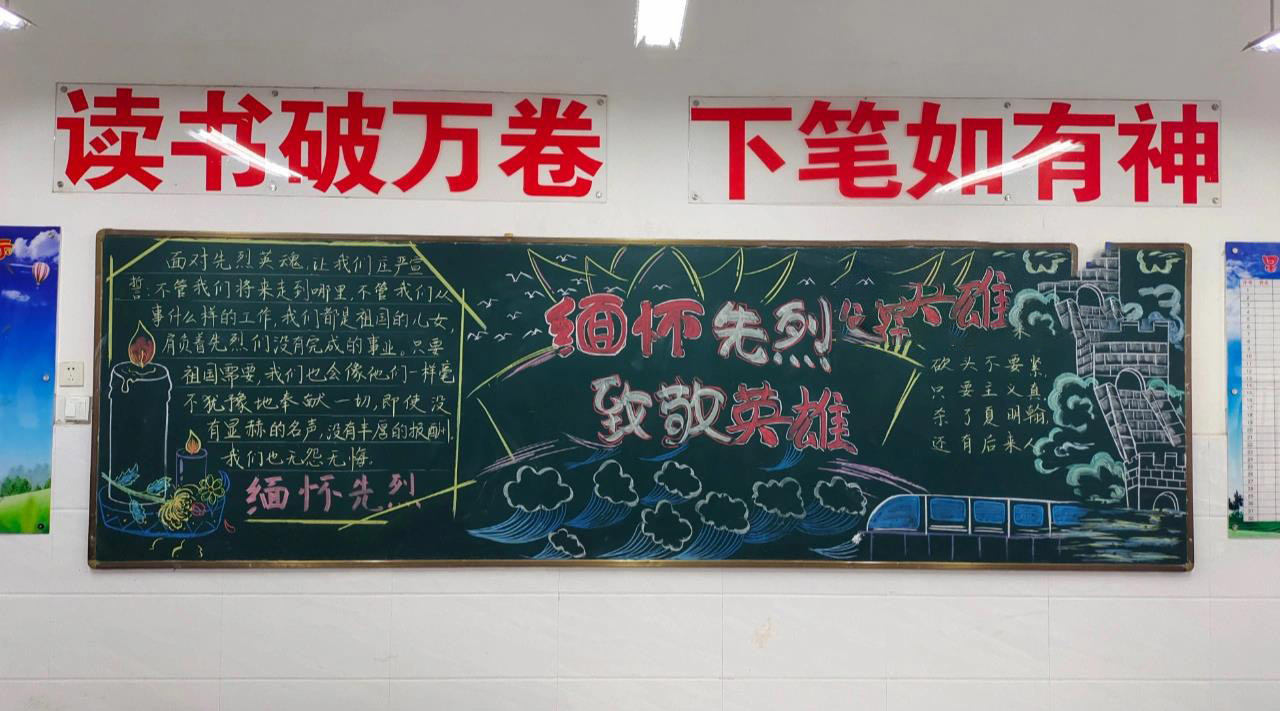 读书破万卷
下笔如有神
面对先烈英魂,让我们庄严宣
誓:不管我们将来走到哪里,不管我们从
事什么样的工作,我们都是祖国的儿女,
肩负着先烈们没有完成的事业。只要
祖国需要,我们也会像他们一样毫
不犹豫地奉献一切,即使没
有显赫的名声,没有丰厚的报酬,
我们也无怨无悔。
缅怀先烈
缅怀先烈
英雄
致敬英雄
砍头不要紧
只要主义真
杀了夏明翰
还有后来人